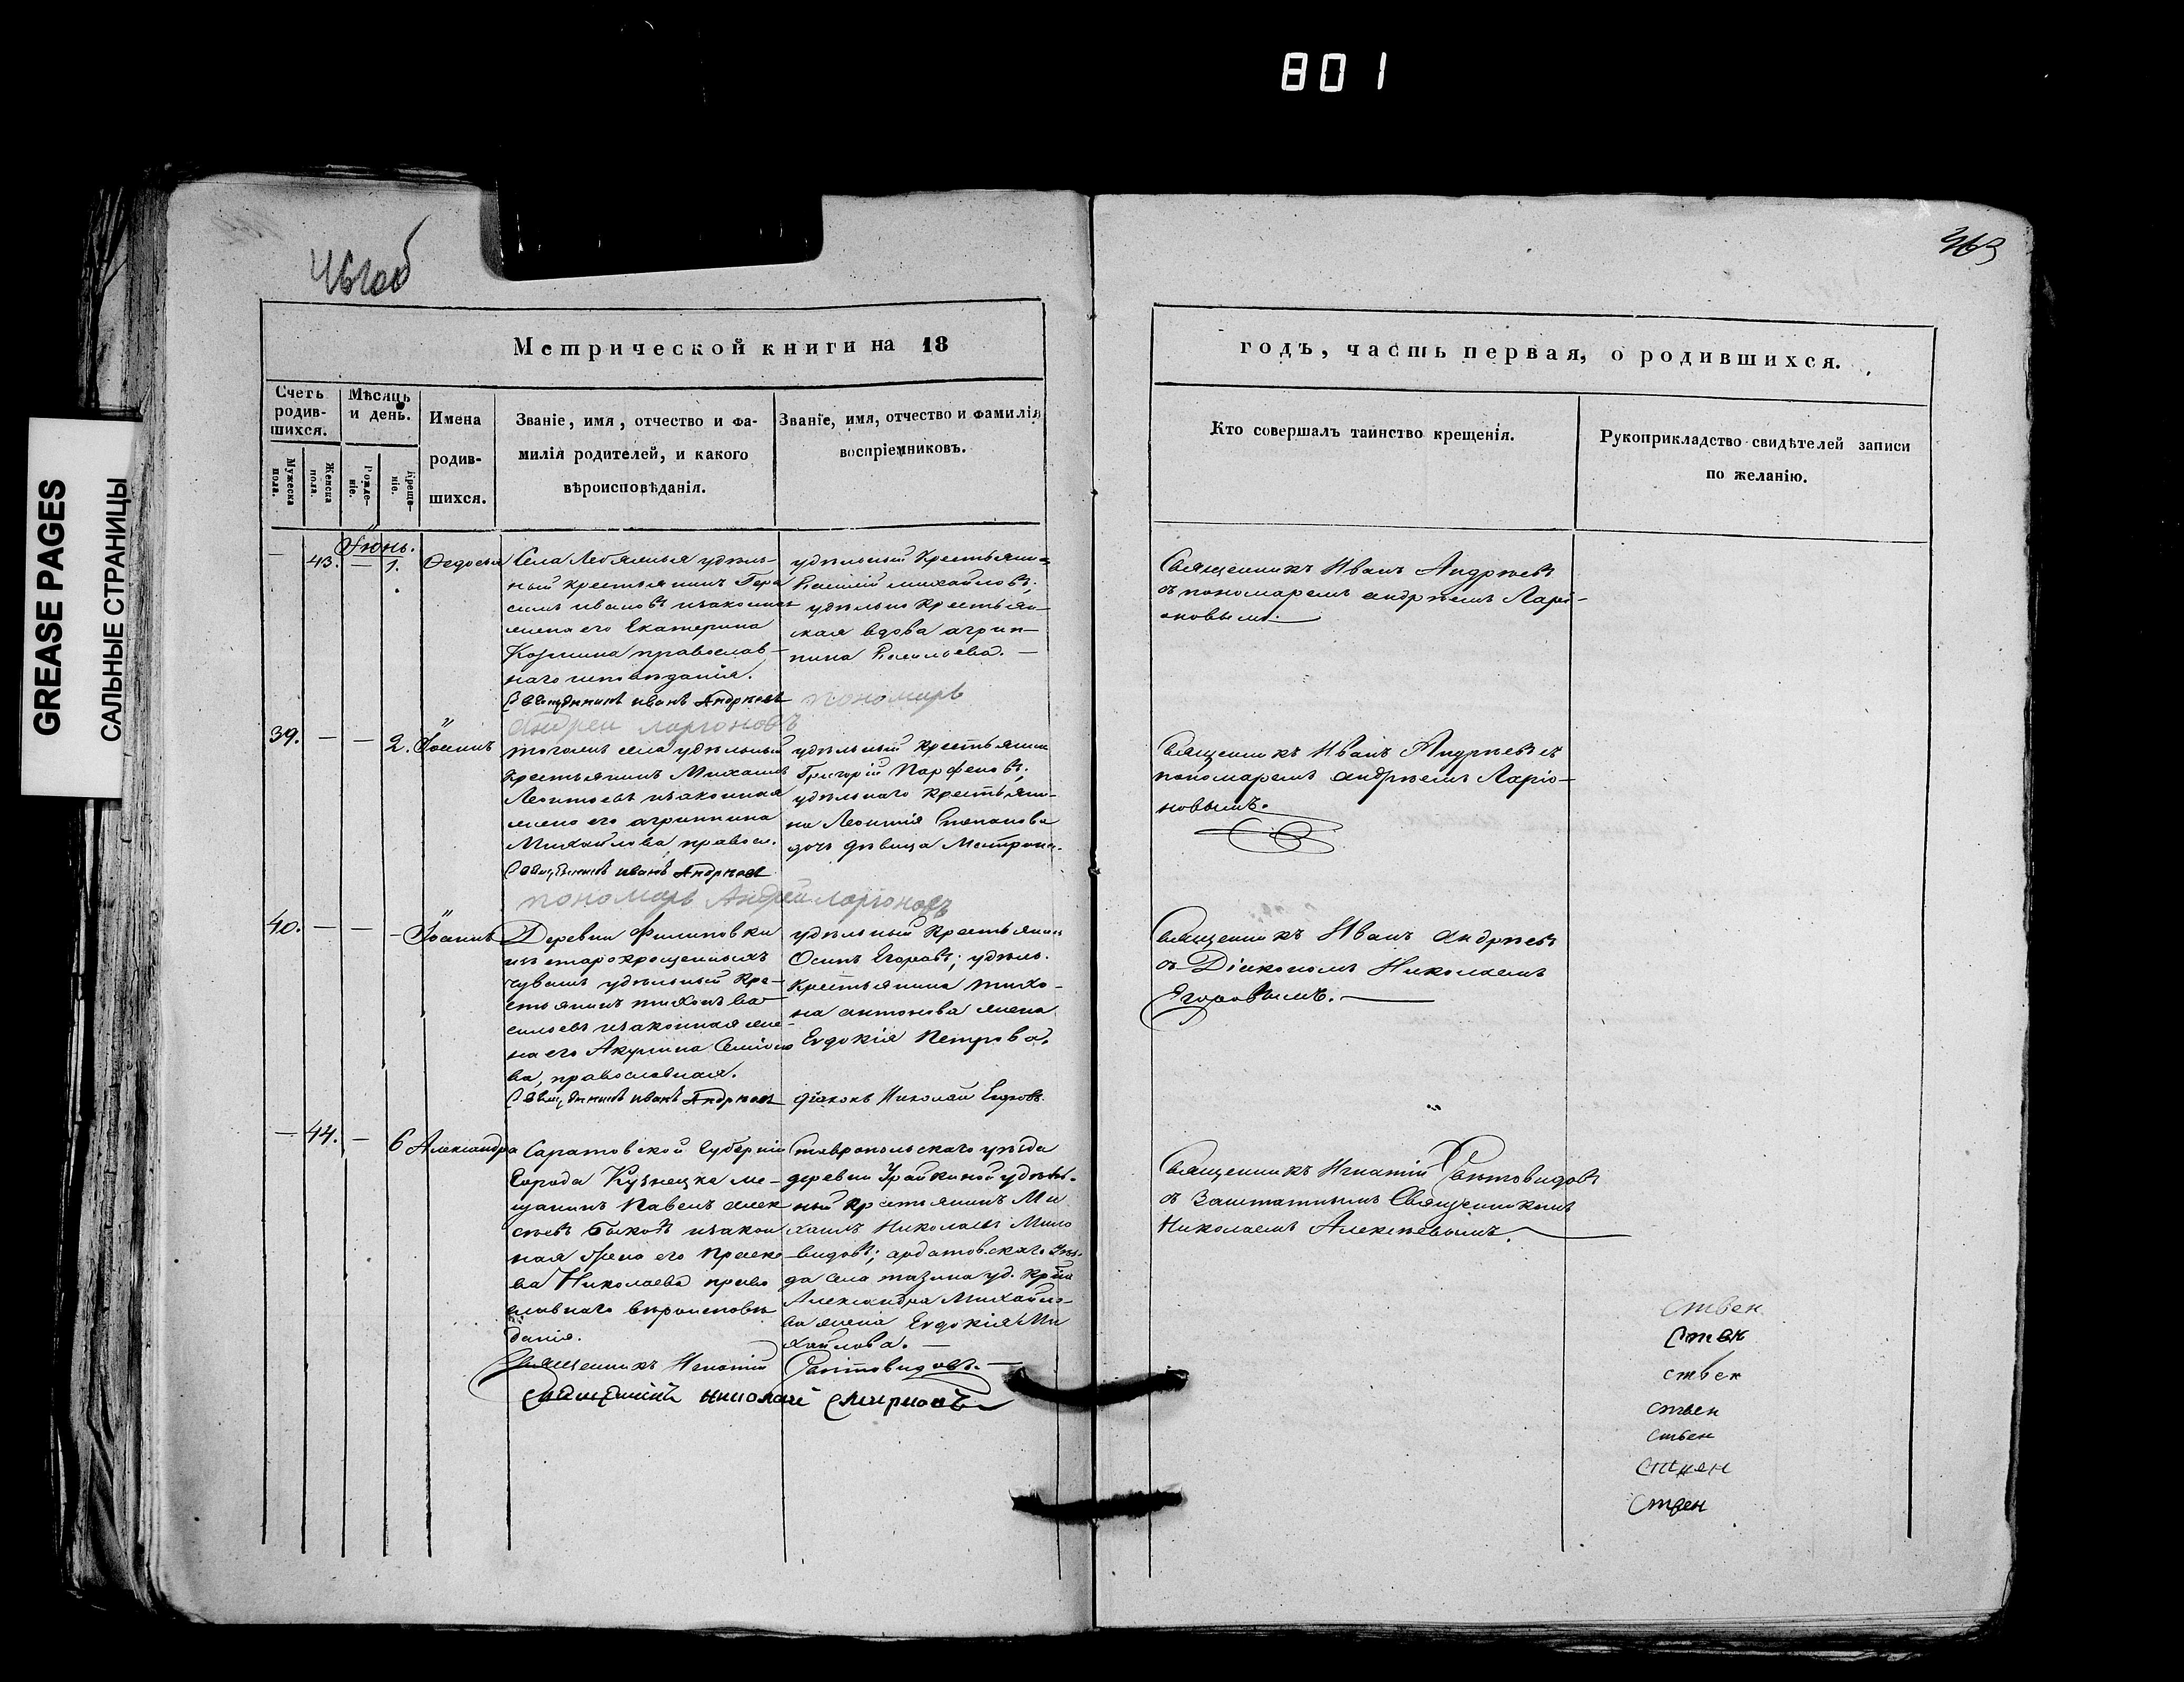 801
GREASE PAGES
САЛЬНЫЕ СТРАНИЦЫ
463
Метрической книги на 18
годъ, часть первая, о родившихся.
Счетъ родив-шихся.
Мужеска пола.
Женска пола.
Мѣсяцъ и день.
Рожде-ніе.
Креще-ніе.
Имена
родив-
шихся.
Званіе, имя, отчество и фа-
милія родителей, и какого
вѣроисповѣданія.
Званіе, имя, отчество и фамилія
воспріемниковъ.
Кто совершалъ таинство крещенія.
Рукоприкладство свидѣтелей записи
по желанію.
Іюнь.
— 43. — 1. Ѳедосья
Села Лебяжья удѣль-
ный крестьянинъ Гера
симъ Ивановъ и законная
жена его Екатерина
Козмина православ-
наго исповѣданія.
Священникъ Иванъ Андреевъ пономарь
Андрей Ларіоновъ
удѣльный крестьянинъ
Михайловъ;
удѣльно крестьян-
ская вдова Агрип-
пина Васильева. —
Священникъ Иванъ Андреевъ
съ пономаремъ Андреемъ Ларі-
оновымъ.
39. — — 2. Іоаннъ
тогожъ села удѣльный
крестьянинъ Михаилъ
Леонтьевъ и законная
жена его Агриппина
Михайлова, правосл.
Священникъ Иванъ Андреевъ
пономарь Андрей Ларіоновъ
удѣльный крестьянинъ
Григорій Парфеновъ;
удѣльнаго крестьяни-
на Леонтія Степанова
дочь дѣвица Матрона.
Священникъ Иванъ Андреевъ съ
пономаремъ Андреемъ Ларіо-
новымъ.
40. — — — Іоаннъ
Деревни Филиповки
изъ старокрещенныхъ
чувашъ удѣльный кре-
стьянинъ Тихонъ Ва
сильевъ и законная же-
на его Акулина Семіоно
ва, православная.
Священникъ Иванъ Андреевъ діаконъ Николай Егоровъ
удѣльный крестьянинъ
Осипъ Егоровъ; удѣль.
крестьянина Тихо-
на Антонова жена
Евдокія Петрова.
Священникъ Иванъ Андреевъ
съ Діакономъ Николаемъ
Егоровымъ. —
— 44. — 6 Александра
Саратовской Губерніи
Города Кузнецка мѣ-
щанинъ Павелъ Алек
сѣевъ Быковъ и закон
ная жена его Праско
ва Николаева право
славнаго вѣроисповѣ
данія.
Ставропольскаго уѣзда
деревни Урайкиной удѣль.
ный крестьянинъ Ми
хаилъ Николаевъ Мило
видовъ; Ардатовскаго уѣз-
да села Тазина уд. кр-на
Александра Михайло-
ва жена Евдокія Ми
хайлова. —
Священникъ Игнатій Свѣтовидовъ. —
Священникъ Николай Смирновъ
Священникъ Игнатій Свѣтовидовъ
съ Заштатнымъ Священникомъ
Николаемъ Алексѣевымъ.
ствен
ствен
ствен
ствен
ствен
ствен
ствен